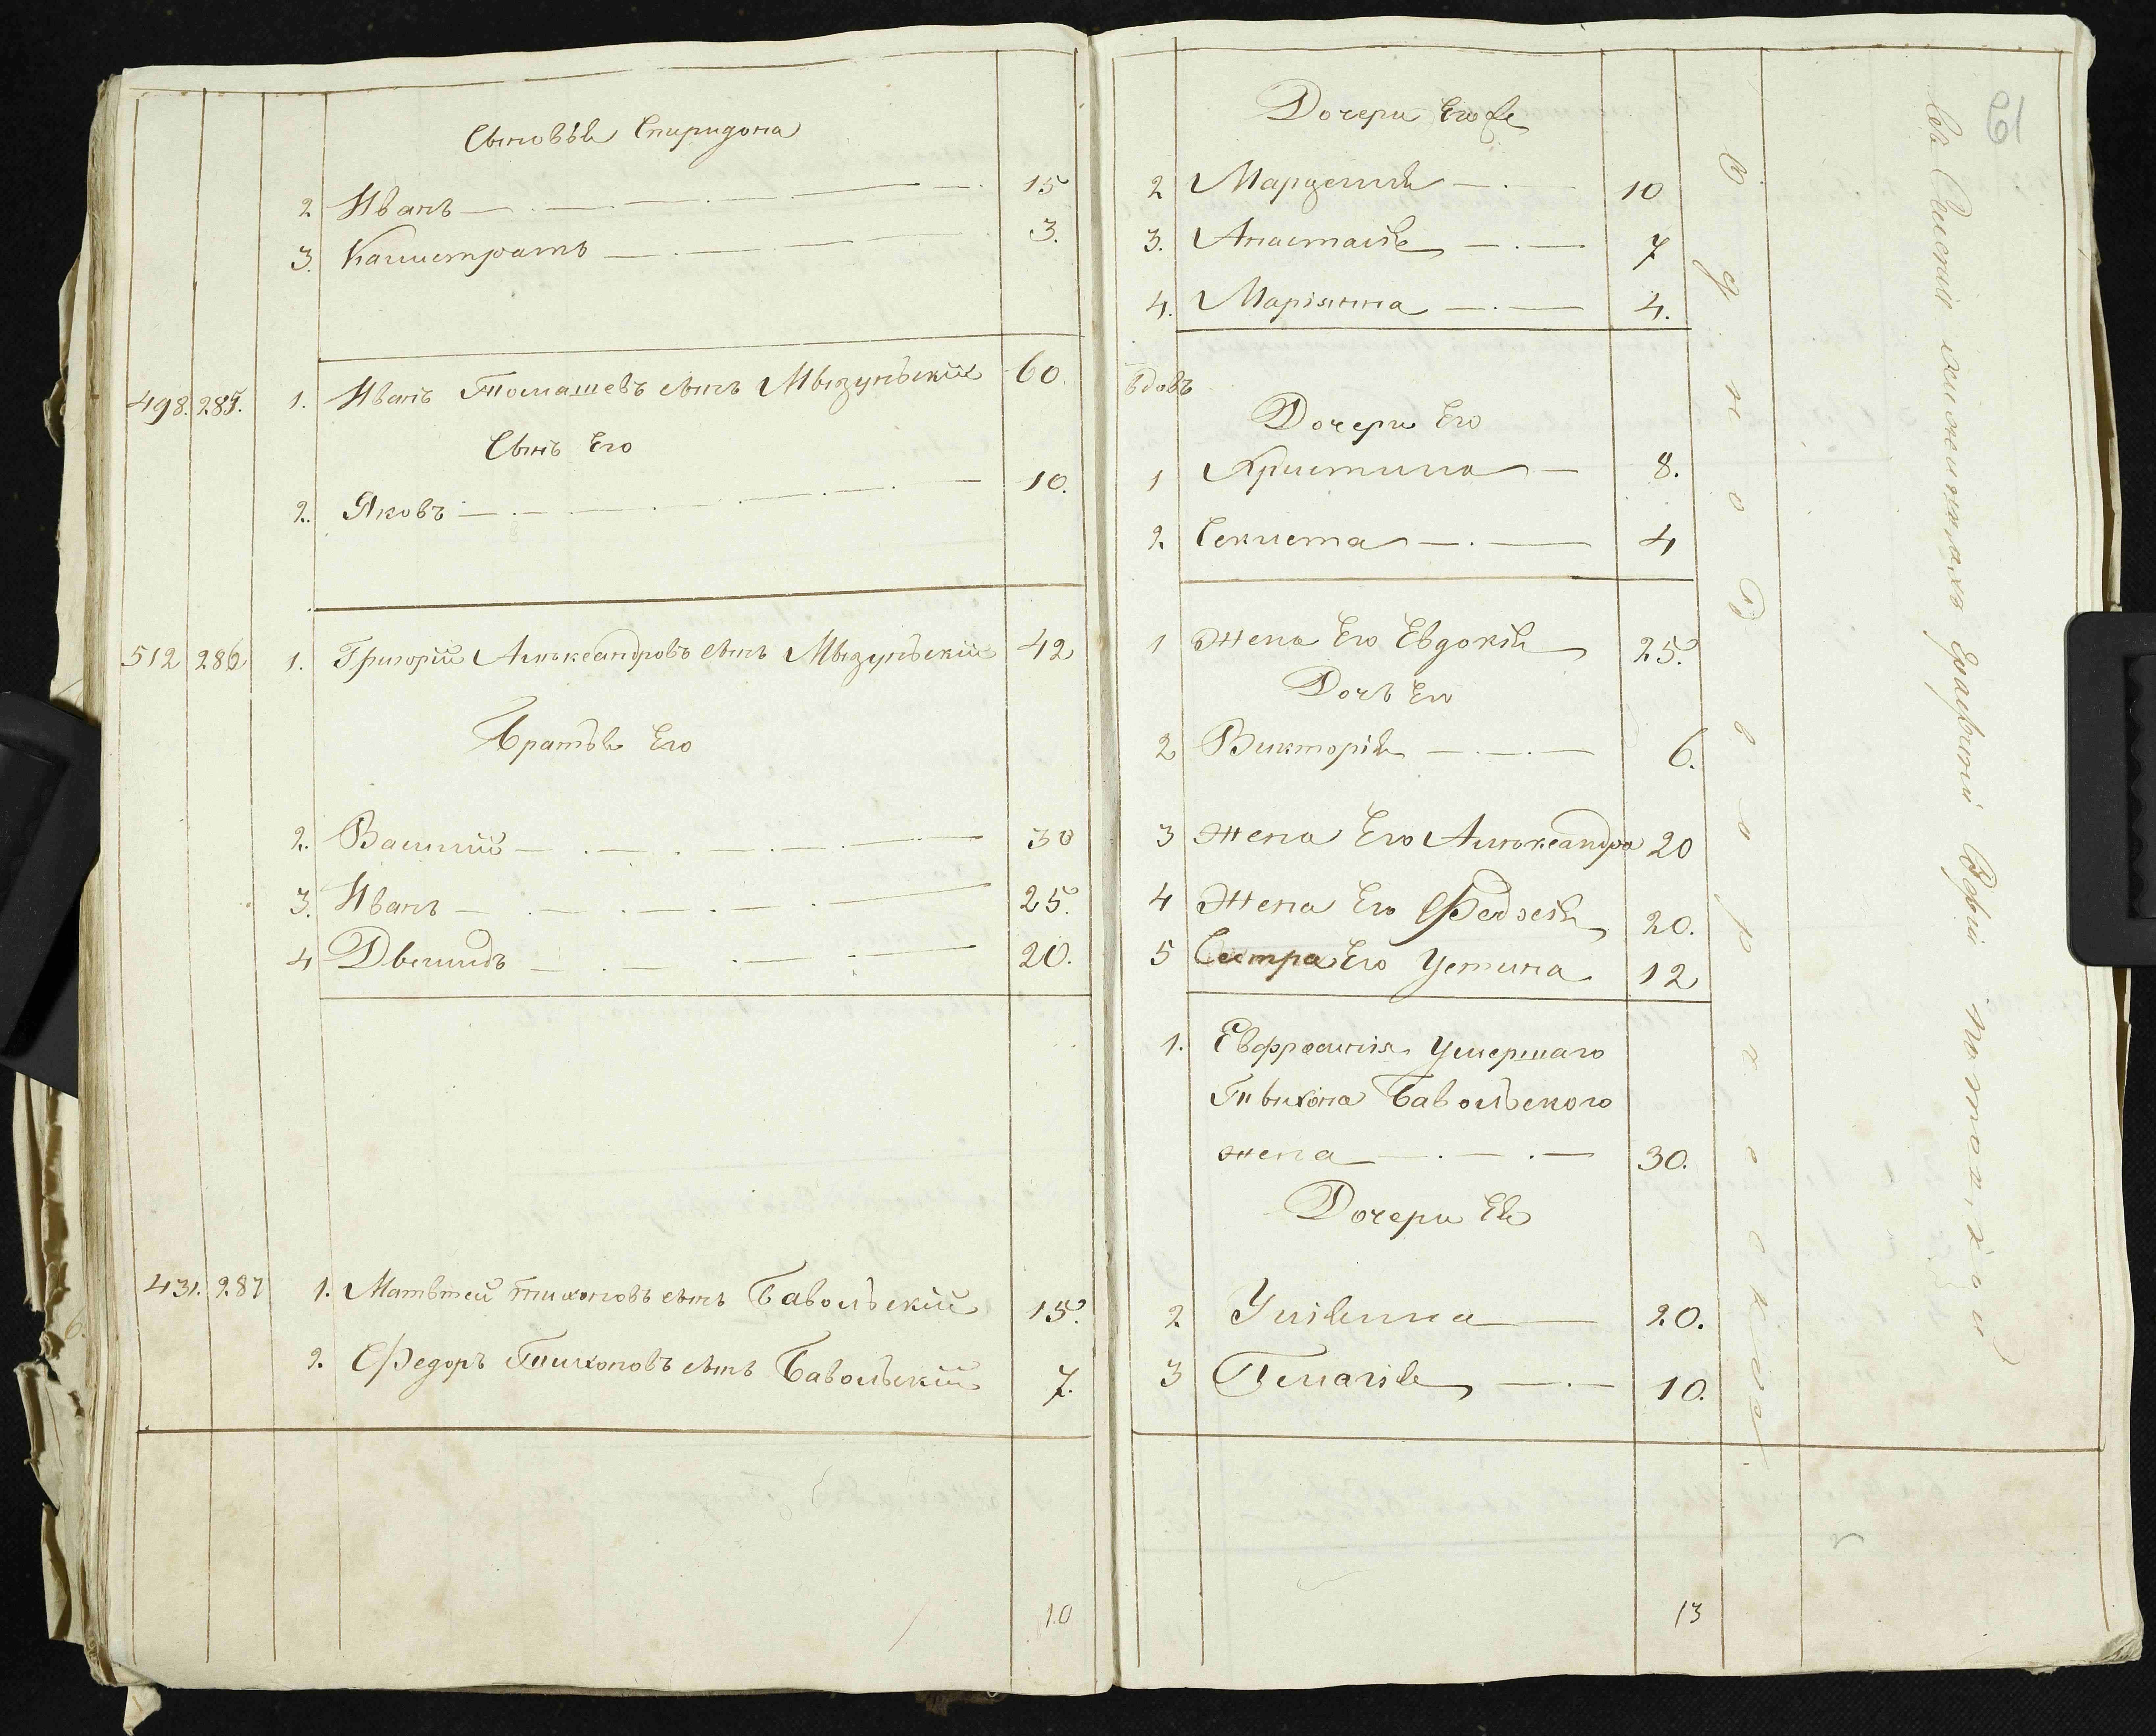 Сыновья Спиридона
2 Иванъ 15
3. Каллистратъ 3.
498. 285. 1. Иванъ Томашевъ сынъ Мызуньскій 60.
Сынъ Его
2. Яковъ 10.
512 286 1. Григорій Александровъ сынъ Мызуньскій 42
Братья Его
2. Василій 30
3. Иванъ 25.
4 20.
431. 287 1. Матвѣй Тихоновъ сынъ Бавольскій 15.
2. Федоръ Тихоновъ сынъ Бавольскій 7.
10
61
Дочери Его же
2 10
3. Анастасія 7
4. Маріянна 4.
Вдовъ
Дочери Его
1 Христина 8.
2. 4
1 Жена Его Евдокія 25.
Дочь Его
2 Викторія 6.
3 Жена Его Александра 20
4 Жена Его 20.
5 Сестра Его Устина 12
1. Евфросинія Умершаго
Тихона Бавольского
жена 30.
Дочери Ея
2 Уліянна 20.
3 Пелагія 10.
13
Однодворческихъ